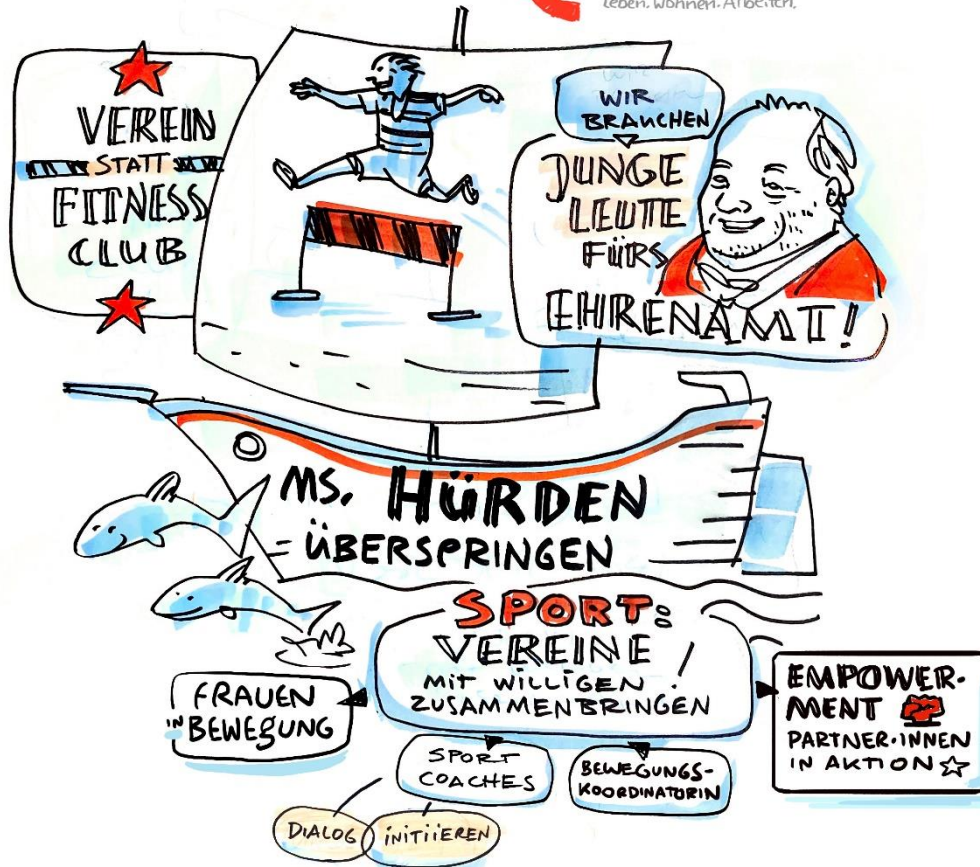 Leben. Wohnen. Arbeiten.
VEREIN
STATT
FITNESS
CLUB
WIR
BRAUCHEN
JUNGE
LEUTE
FÜRS
EHRENAMT!
MS. HÜRDEN
ÜBERSPRINGEN
SPORT:
VEREINE
MIT WILLIGEN !
ZUSAMMENBRINGEN
FRAUEN
IN BEWEGUNG
SPORT
COACHES
BEWEGUNGS-
KOORDINATORIN
EMPOWER-
MENT
PARTNER·INNEN
IN AKTION
DIALOG INITIIEREN